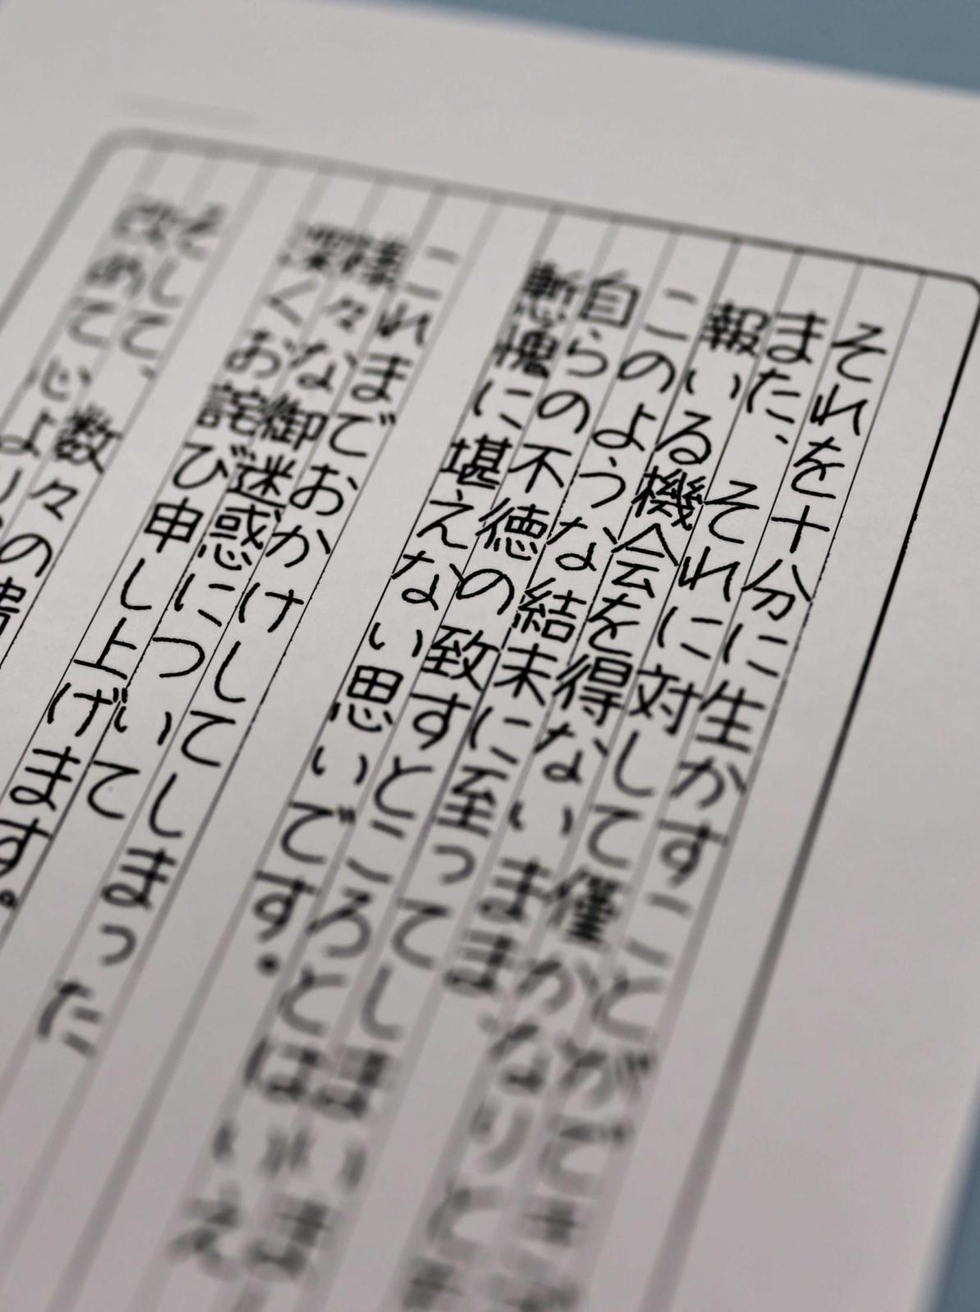 それを十分に生かすことができず
また、それに対して僅かなりとも
報いる機会を得ないまま、
このような結末に至ってしまいま
自らの不徳の致すところとはいえ
慙愧に堪えない思いです。
これまでおかけしてしまった
様々な御迷惑について
深くお詫び申し上げます。
そして、数々の
改めて心より